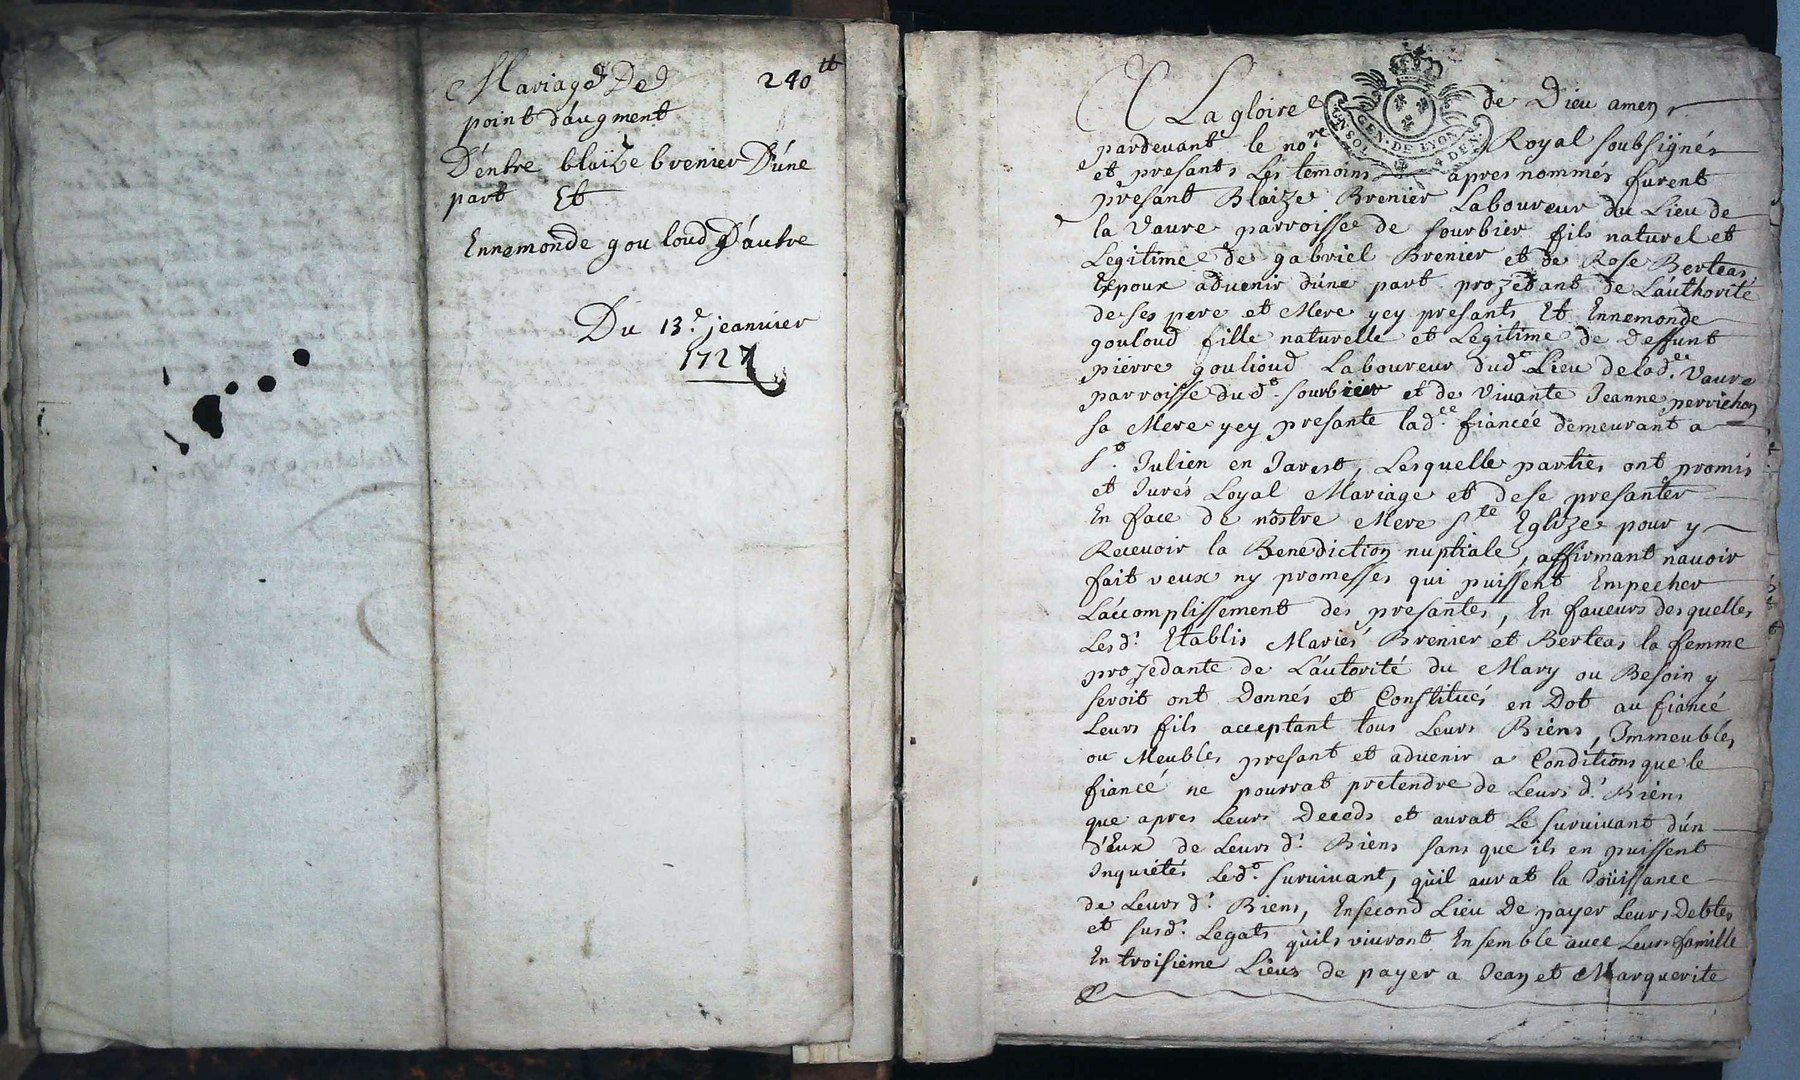 Mariage De 240tt
point d'augment
D'entre blaize brenier D'une
part Et
Ennemonde gouloud D'autre
Du 13.e jeanvier
1727
A La gloire de Dieu amen
pardevant le no.re Royal soubsignés
et presants Les temoins apres nommés furent
presant Blaize Brenier Laboureur du Lieu de
la Vaure parroisse de sourbier fils naturel et
Legitime de gabriel Brenier et de Rose Berteas
Expoux advenir d'une part prozedant de L'authorité
de ses pere et Mere yey presants Et Ennemonde
gouloud fille naturelle et Legitime de deffunt
pierre goulioud Laboureur dud.t Lieu de lad.ee Vaure
parroisse dud.t sourbier et de Vivante Jeanne perrichon
sa Mere yey presante lad.ee fiancée demeurant a
S.t Julien en Jarest, Lesquelle parties ont promis
et Jurés Loyal Mariage et de se presanter
En face de nostre Mere S.te Eglize pour y
Recevoir la Benediction nuptiale, affirmant n'avoir
fait veux ny promesses qui puissent Empecher
L'accomplissement des presantes, En faveurs desquelles
Lesd.t Etablis Mariés Brenier et Berteas la femme
prozedante de L'autorité du Mary ou Besoin y
seroit ont Donnés et Constitués en Dot au fiancé
Leurs fils acceptant tous Leurs Biens, Immeubles
ou Meubles presant et advenir a Conditions que le
fiancé ne pourrat pretendre de Leurs d.t Biens
que apres Leurs Deceds et aurat Le survivant d'un
d'Eux de Leurs d.t Biens sans que ils en puissent
Inquiétés Led.t survivant, qu'il aurat la Joüissance
de Leurs d.t Biens, En second Lieu De payer Leurs Debtes
et susd.t Legats qu'ils vivront Ensemble avec Leurs famille
En troisieme Lieus de payer a Jean et Marguerite
GEN. DE LYON